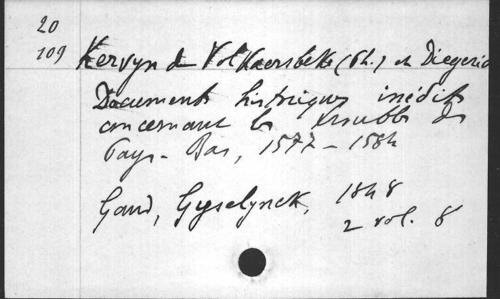 20
109
Kervyn de Volkaersbeke (Ph.) et Diegerick
Documents historiques inédits
concernant les troubles des
Pays-Bas, 1577-1584
Gand, Gyselynck, 1848
2 vol. 8